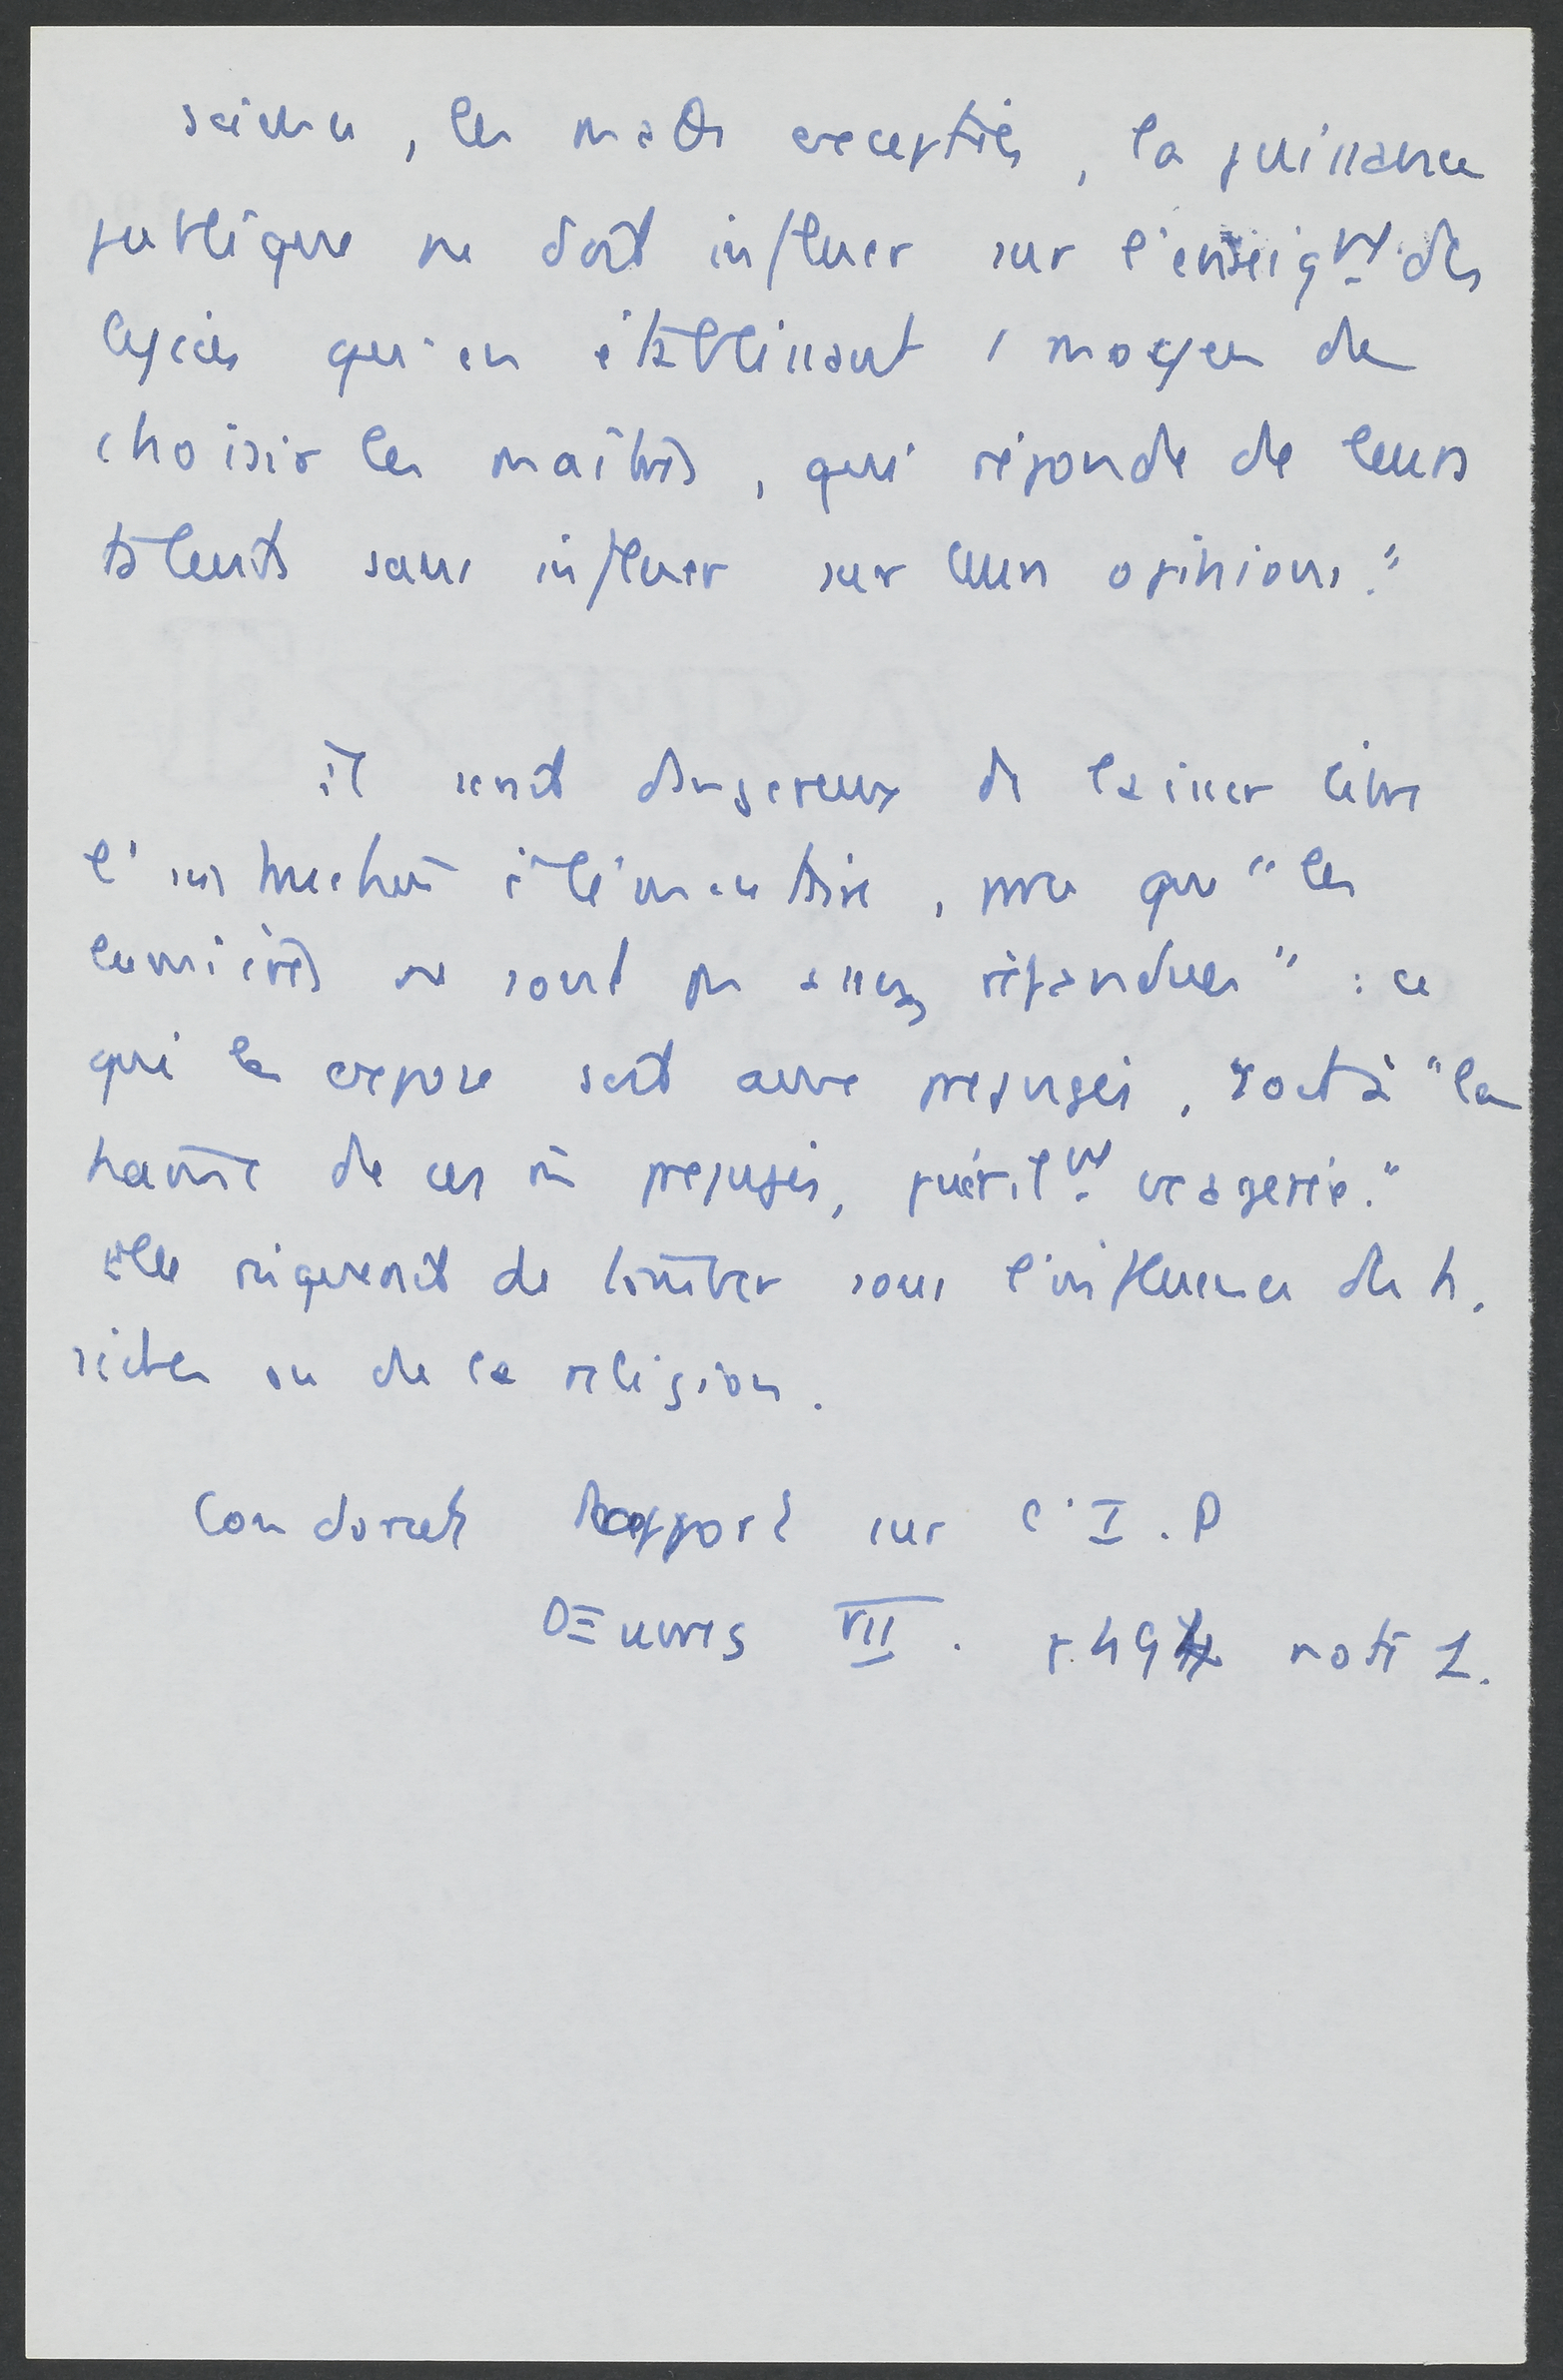 science, les maths exceptés, la puissance
publique ne doit influer sur l'enseigt des
lycées qu'en établissant 1 moyen de
choisir les maîtres, qui réponde de leurs
talents sans influer sur leurs opinions."
il serait dangereux de laisser libre
l'instruction élémentaire, pce que "les
lumières ne sont pas assez répandues" : ce
qui la expose soit aux préjugés, soit à "la
haine de ces m préjugés, puérilt exagérée."
Elle risquerait de tomber sous l'influence des h.
riches ou de la religion.
Condorcet Rapport sur l'I.P
OEuvres VII. p. 494 note 1.